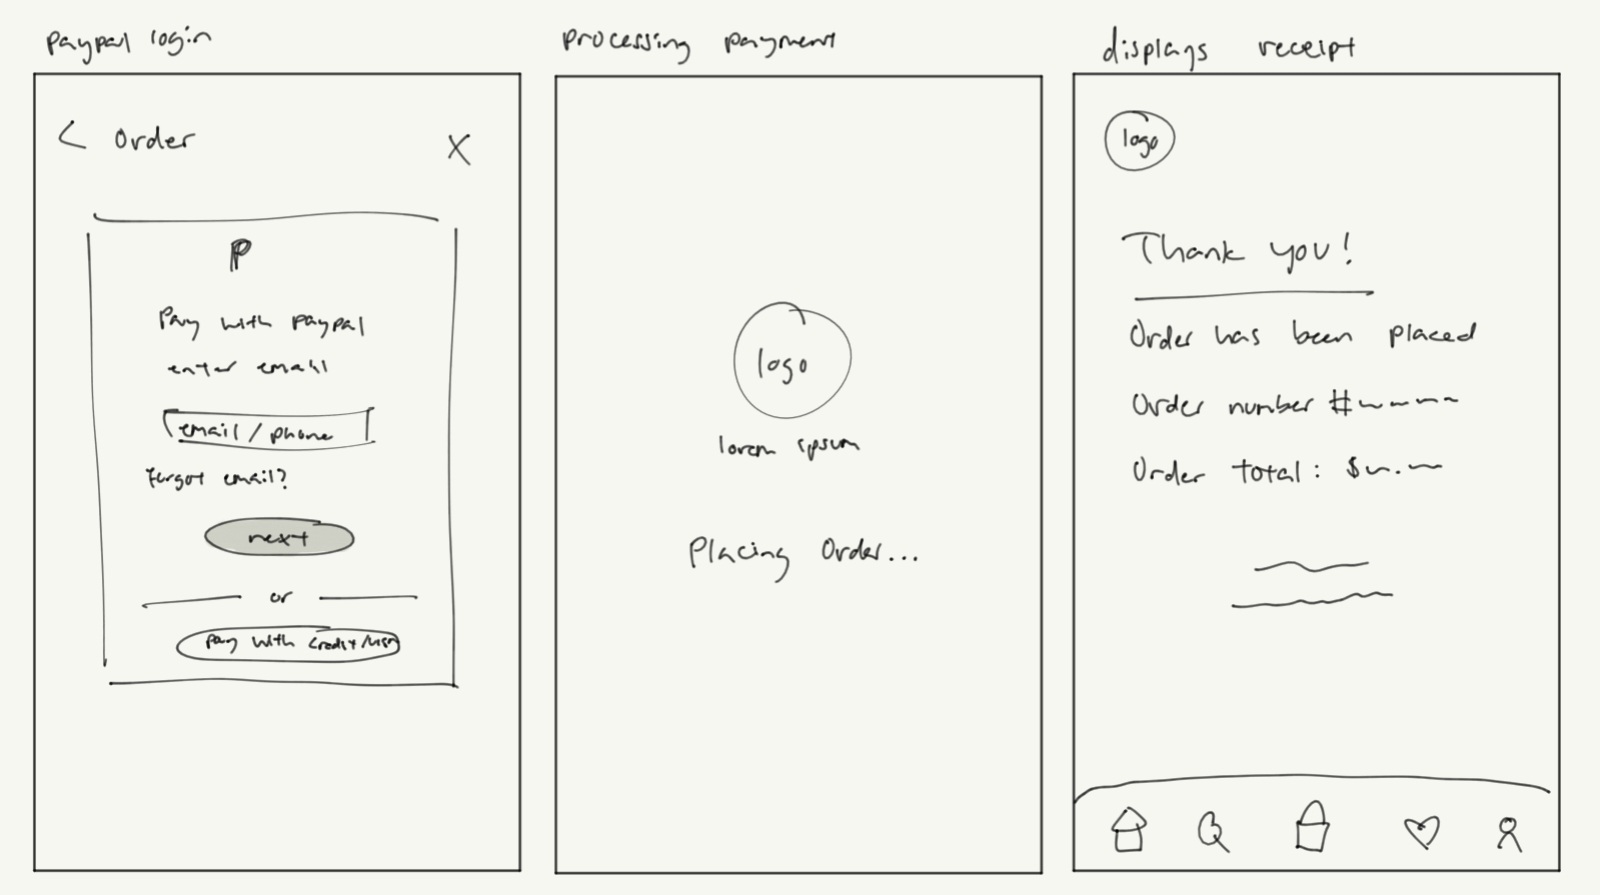 paypal login
< Order X
P
Pay with paypal
enter email
email / phone
Forgot email?
next
or
Pay with credit/visa
processing payment
logo
lorem ipsum
Placing Order...
displays receipt
logo
Thank you!
Order has been placed
Order number #
Order total: $